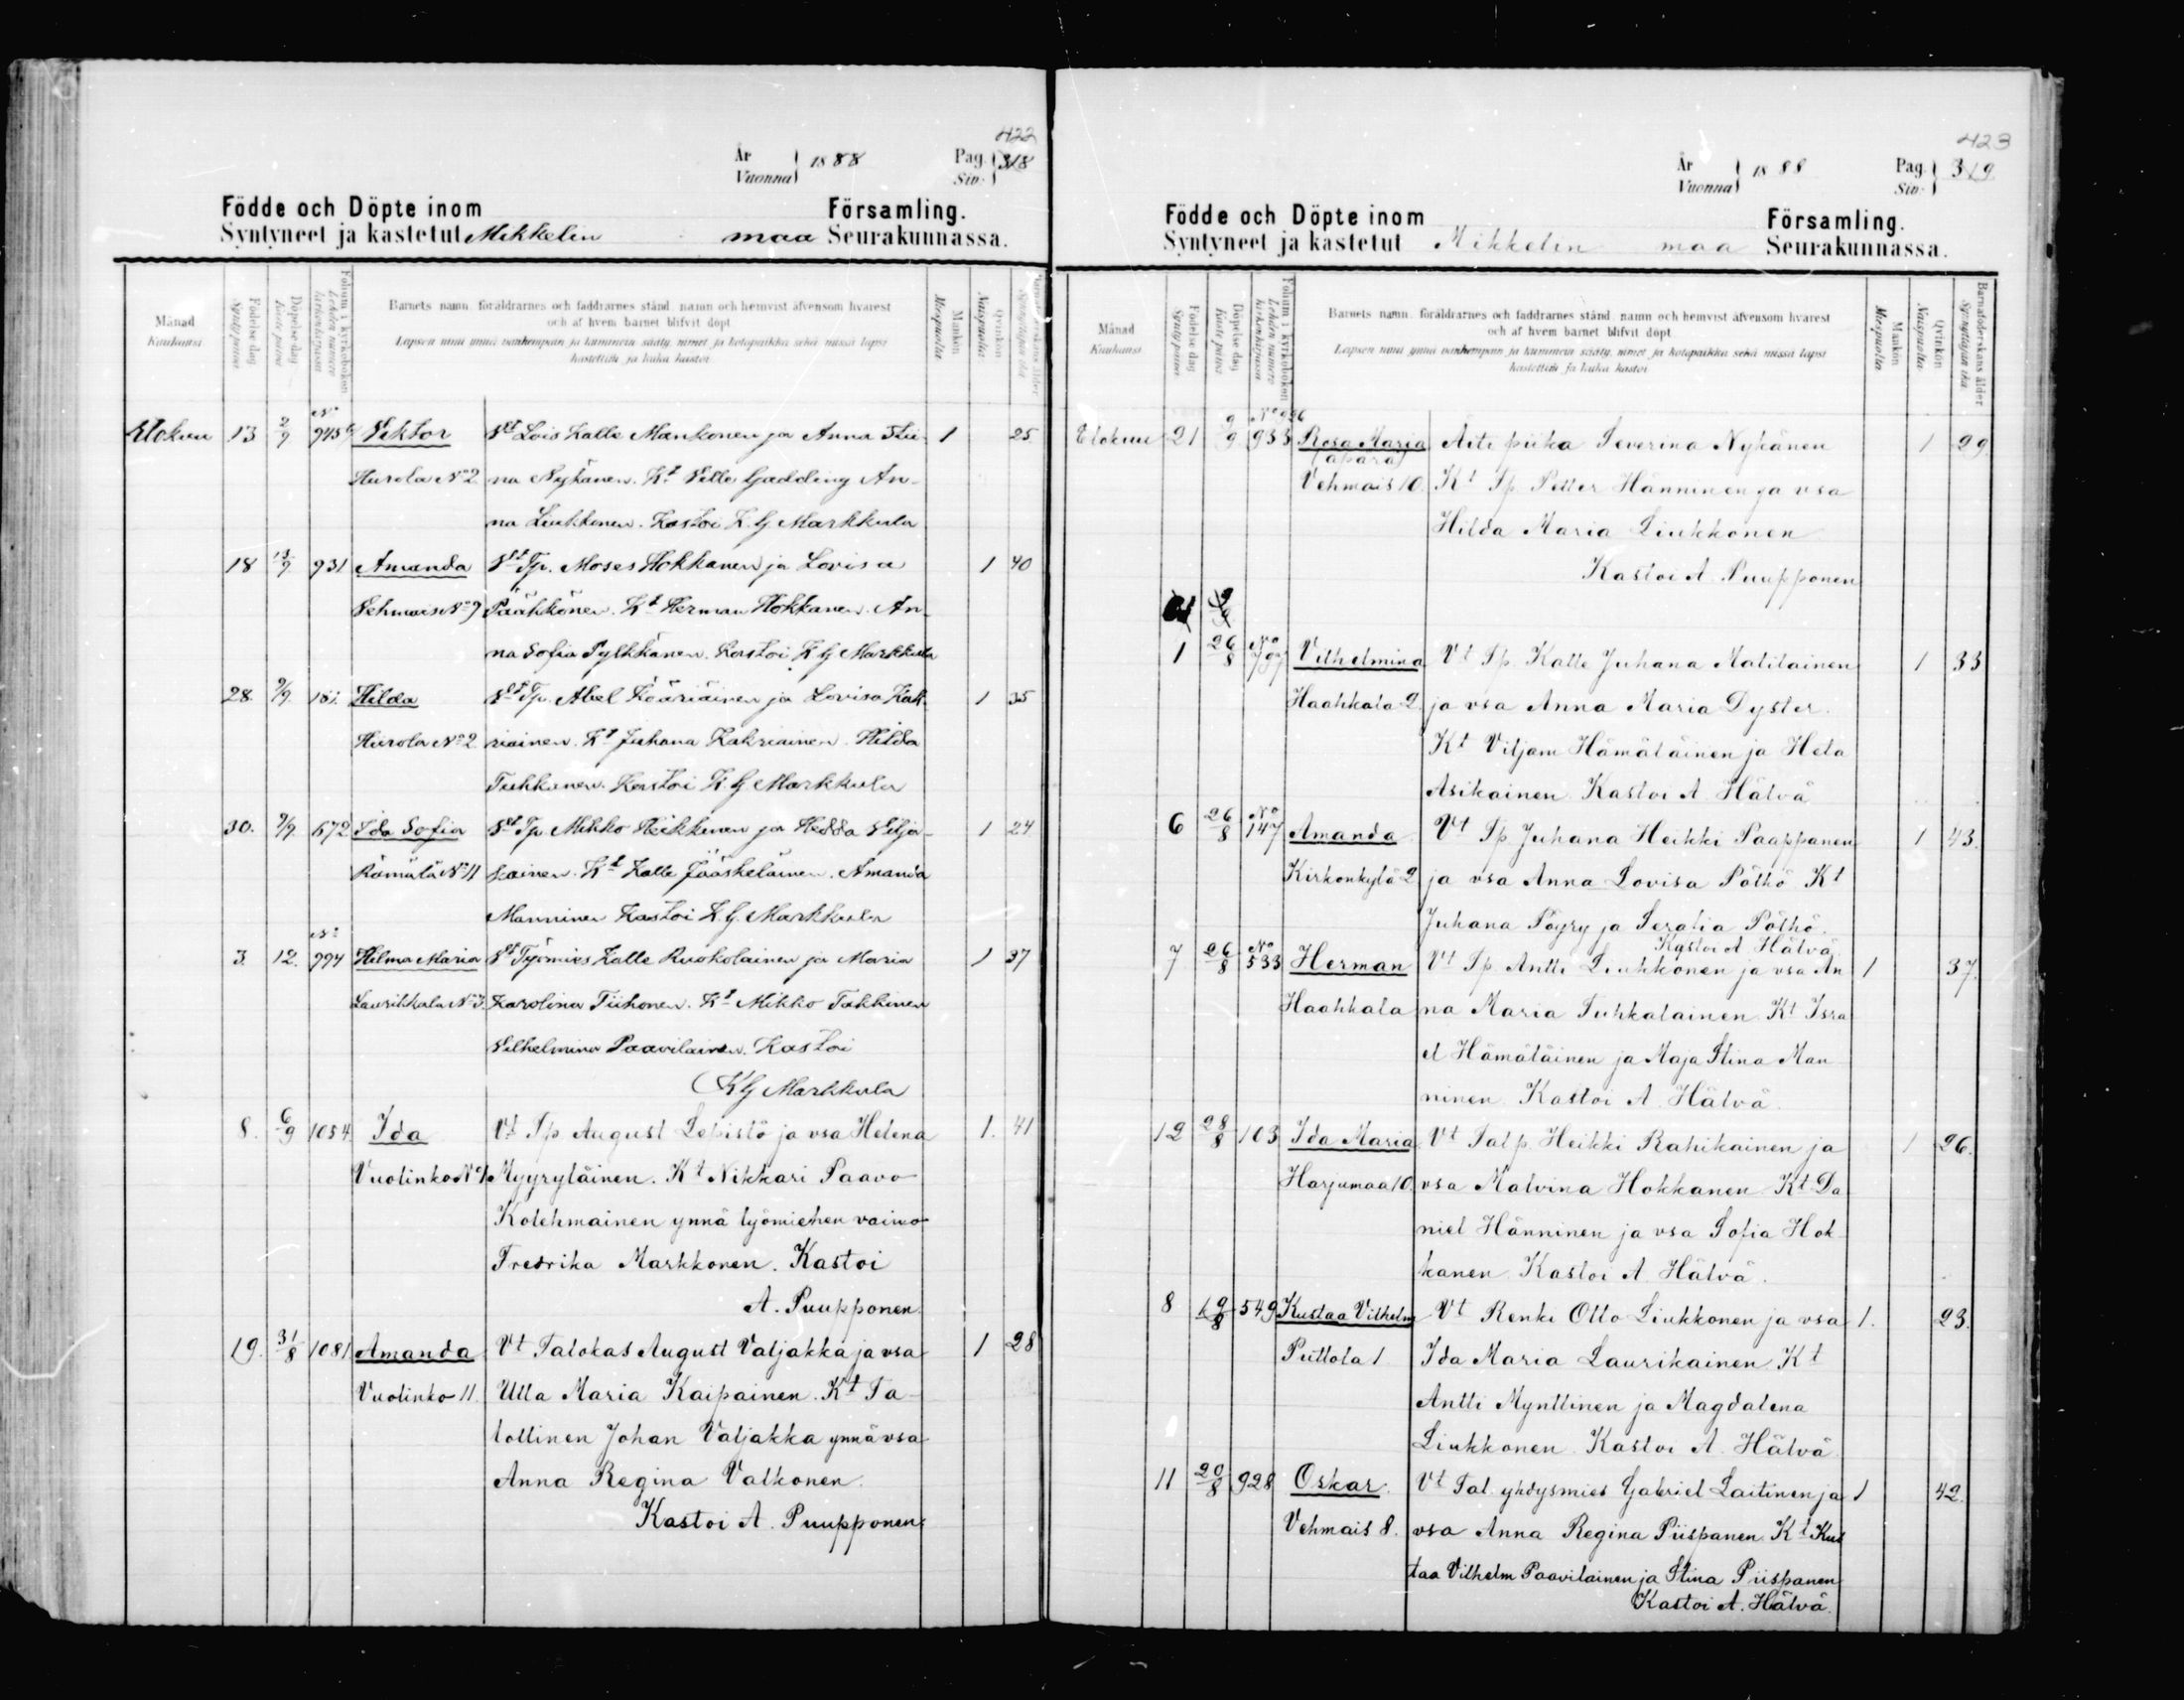 422
År Vuonna 1888 Pag. Siv. 318
Födde och Döpte inom Församling.
Syntyneet ja kastetut Mikkelin maa Seurakunnassa.
Månad Kuukausi
Födelse dag Synty päivä
Döpelse dag Kaste päivä
Folium i kyrkoboken Lehden numero kirkonkirjassa
Barnets namn, föräldrarnes och faddrarnes stånd, namn och hemvist äfvensom hvarest
och af hvem barnet blifvit döpt
Lapsen nimi ynnä vanhempain ja kummein sääty, nimet ja kotopaikka sekä missä lapsi
kastettiin ja kuka kastoi.
Mankön Miespuolia
Qvinkön Naispuolia
Elokuu 13 2/9 No 945 Viktor Vt Lois Kalle Mankonen ja Anna Stii- 1 25
Hiirola No 2 na Nykänen. Kt Ville Gadding An-
na Liukkonen. Kastoi K. G. Markkula
18 13/9 931 Amanda Vt Tp. Moses Hokkanen ja Lovisa 1 40
Vehmais No 9 Päähkönen. Kt Herman Hokkanen. An-
na Sofia Pylkkänen. Kastoi K G Markkula
28. 9/9 181. Hilda Vt Tp. Abel Kääriäinen ja Lovisa Kak- 1 35
Hiirola No 2 riainen. Kt Juhana Kakriainen. Hilda
Tuhkanen. Kastoi K. G. Markkula
30. 9/9 672 Ida Sofia Vt Tp. Mikko Heikkinen ja Hedda Vilja- 1 24
Rämälä No 11 kainen. Kt Kalle Jääskeläinen. Amanda
Manninen Kastoi K. G. Markkula
3. 12. No 994 Hilma Maria Vt Työmies Kalle Ruokolainen ja Maria 1 37
Laurikkala No 3. Karolina Tiihonen. Kt Mikko Takkinen
Vilhelmina Paavilainen. Kastoi
K G Markkula
8. 6/9 1054 Ida Vt Tp August Lepistö ja vsa Helena 1. 41
Vuolinko No 1 Myyryläinen. Kt Nikkari Paavo
Kolehmainen ynnä työmiehen vaimo
Fredrika Markkonen. Kastoi
A. Puupponen.
19. 31/8 1081 Amanda Vt Talokas August Valjakka ja vsa 1 28
Vuolinko 11. Ulla Maria Kaipainen. Kt Ta-
lollinen Johan Valjakka ynnä vsa
Anna Regina Valkonen.
Kastoi A. Puupponen
423
År Vuonna 1888 Pag. Siv. 319
Födde och Döpte inom Församling.
Syntyneet ja kastetut Mikkelin maa Seurakunnassa.
Månad Kuukausi
Födelse dag Synty päivä
Döpelse dag Kaste päivä
Folium i kyrkoboken Lehden numero kirkonkirjassa
Barnets namn, föräldrarnes och faddrarnes stånd, namn och hemvist äfvensom hvarest
och af hvem barnet blifvit döpt.
Lapsen nimi ynnä vanhempain ja kummein sääty, nimet ja kotopaikka sekä missä lapsi
kastettiin ja kuka kastoi.
Mankön Miespuolia
Qvinkön Naispuolia
Barnaföderskans ålder Synnyttäjän ikä
Elokuu 21 9/9 933 Rosa Maria Äiti piika Severina Nykänen 1 29
(äpärä)
Vehmais 10. Kt Tp. Petter Hänninen ja vsa
Hilda Maria Liukkonen
Kastoi A. Puupponen
1 26/8 No 797 Vilhelmina Vt Tp. Kalle Juhana Matilainen 1 33
Haahkala 2. ja vsa Anna Maria Dyster.
Kt Viljam Hämäläinen ja Hela
Asikainen. Kastoi A. Hälvä
6 26/8 No 147 Amanda Vt Tp Juhana Heikki Paappanen 1 43.
Kirkonkylä 2 ja vsa Anna Lovisa Pöthö Kt
Juhana Pöyry ja Serafia Pöthö.
Kastoi A Hälvä
7 26/8 No 533 Herman Vt Tp. Antti Liukkonen ja vsa An 1 37.
Haahkala na Maria Tuhkalainen. Kt Isra
el Hämäläinen ja Maja Stina Man
ninen Kastoi A. Hälvä.
12 28/8 103 Ida Maria Vt Talp. Heikki Rahikainen ja 1 26.
Harjumaa 10. vsa Malvina Hokkanen. Kt Da
niel Hänninen ja vsa Sofia Hok
kanen Kastoi A. Hälvä.
8 19/8 549 Kustaa Vilhelm Vt Renki Otto Liukkonen ja vsa 1. 23.
Pullola 1 Ida Maria Laurikainen Kt
Antti Mynttinen ja Magdalena
Liukkonen. Kastoi A. Hälvä
11 20/8 928 Oskar. Vt Tal. yhdysmies Gabriel Laitinen ja 1 42.
Vehmais 8. vsa Anna Regina Piispanen Kt Kus
taa Vilhelm Paavilainen ja Stina Piispanen
Kastoi A. Hälvä.